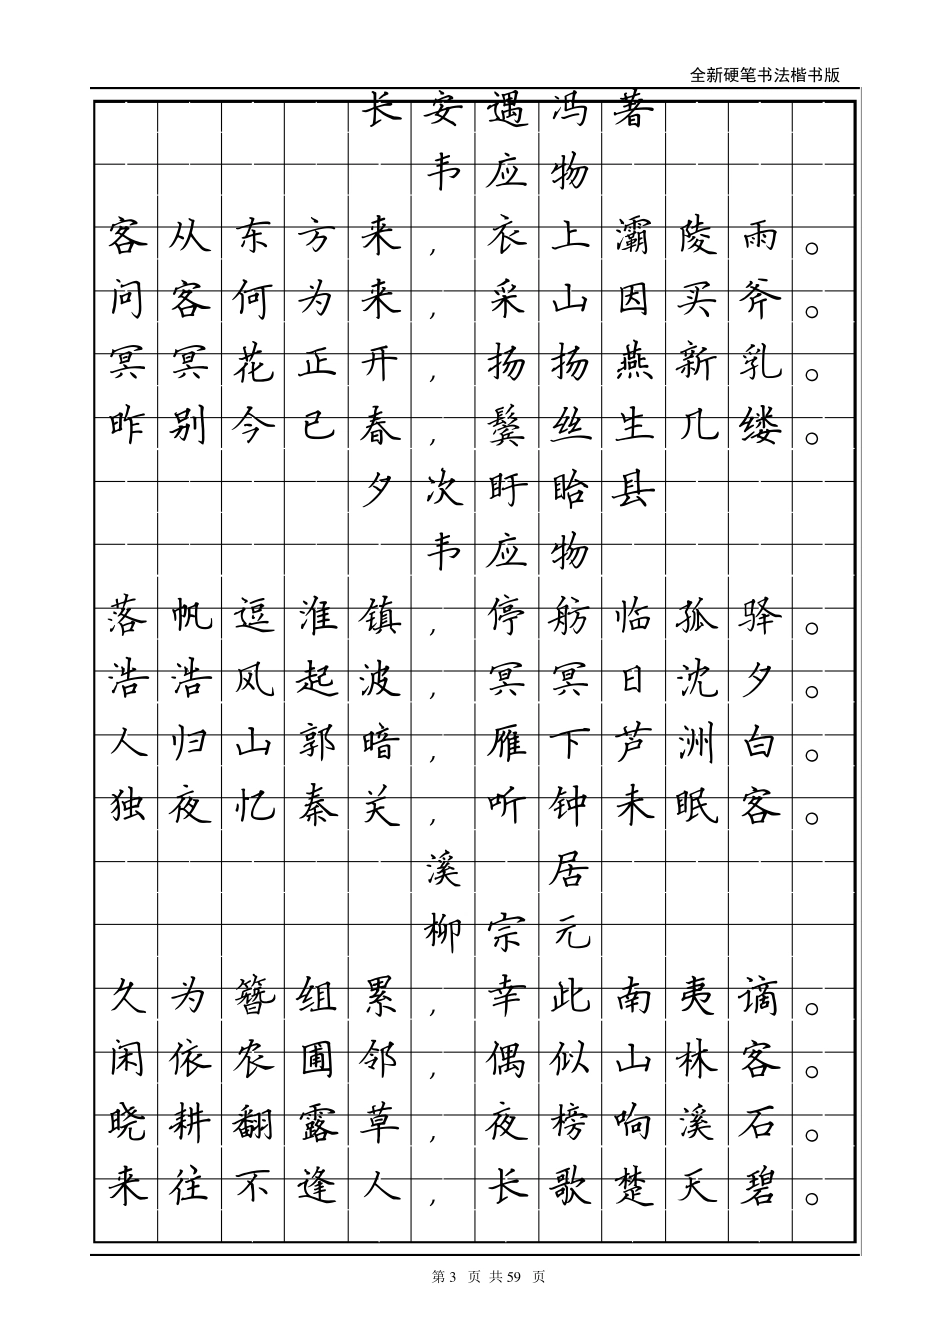 全新硬笔书法楷书版
长安遇冯著
韦应物
客从东方来，衣上灞陵雨。
问客何为来，采山因买斧。
冥冥花正开，扬扬燕新乳。
昨别今已春，鬓丝生几缕。
夕次盱眙县
韦应物
落帆逗淮镇，停舫临孤驿。
浩浩风起波，冥冥日沈夕。
人归山郭暗，雁下芦洲白。
独夜忆秦关，听钟未眠客。
溪 居
柳宗元
久为簪组累，幸此南夷谪。
闲依农圃邻，偶似山林客。
晓耕翻露草，夜榜响溪石。
来往不逢人，长歌楚天碧。
第 3 页 共 59 页